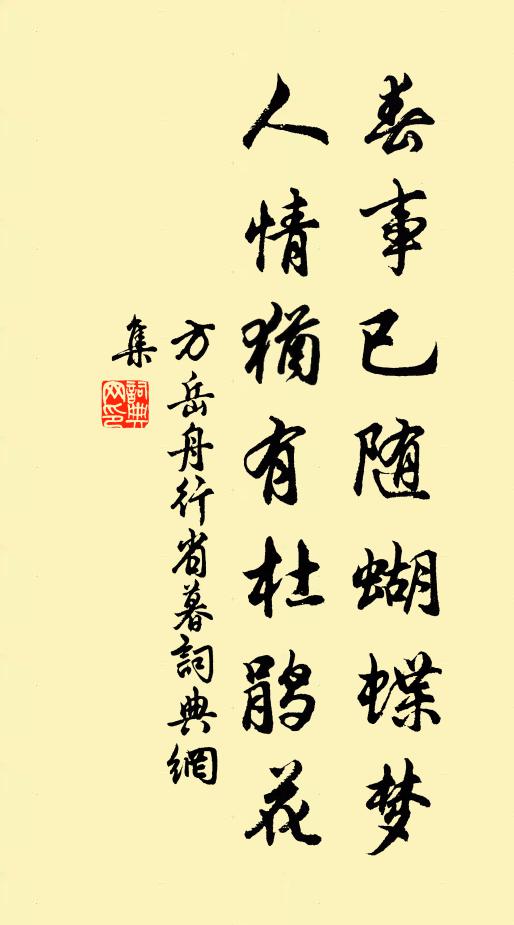 春事已随蝴蝶梦
人情犹有杜鹃花
方岳舟行省暮詞典網
集
詞典
网印